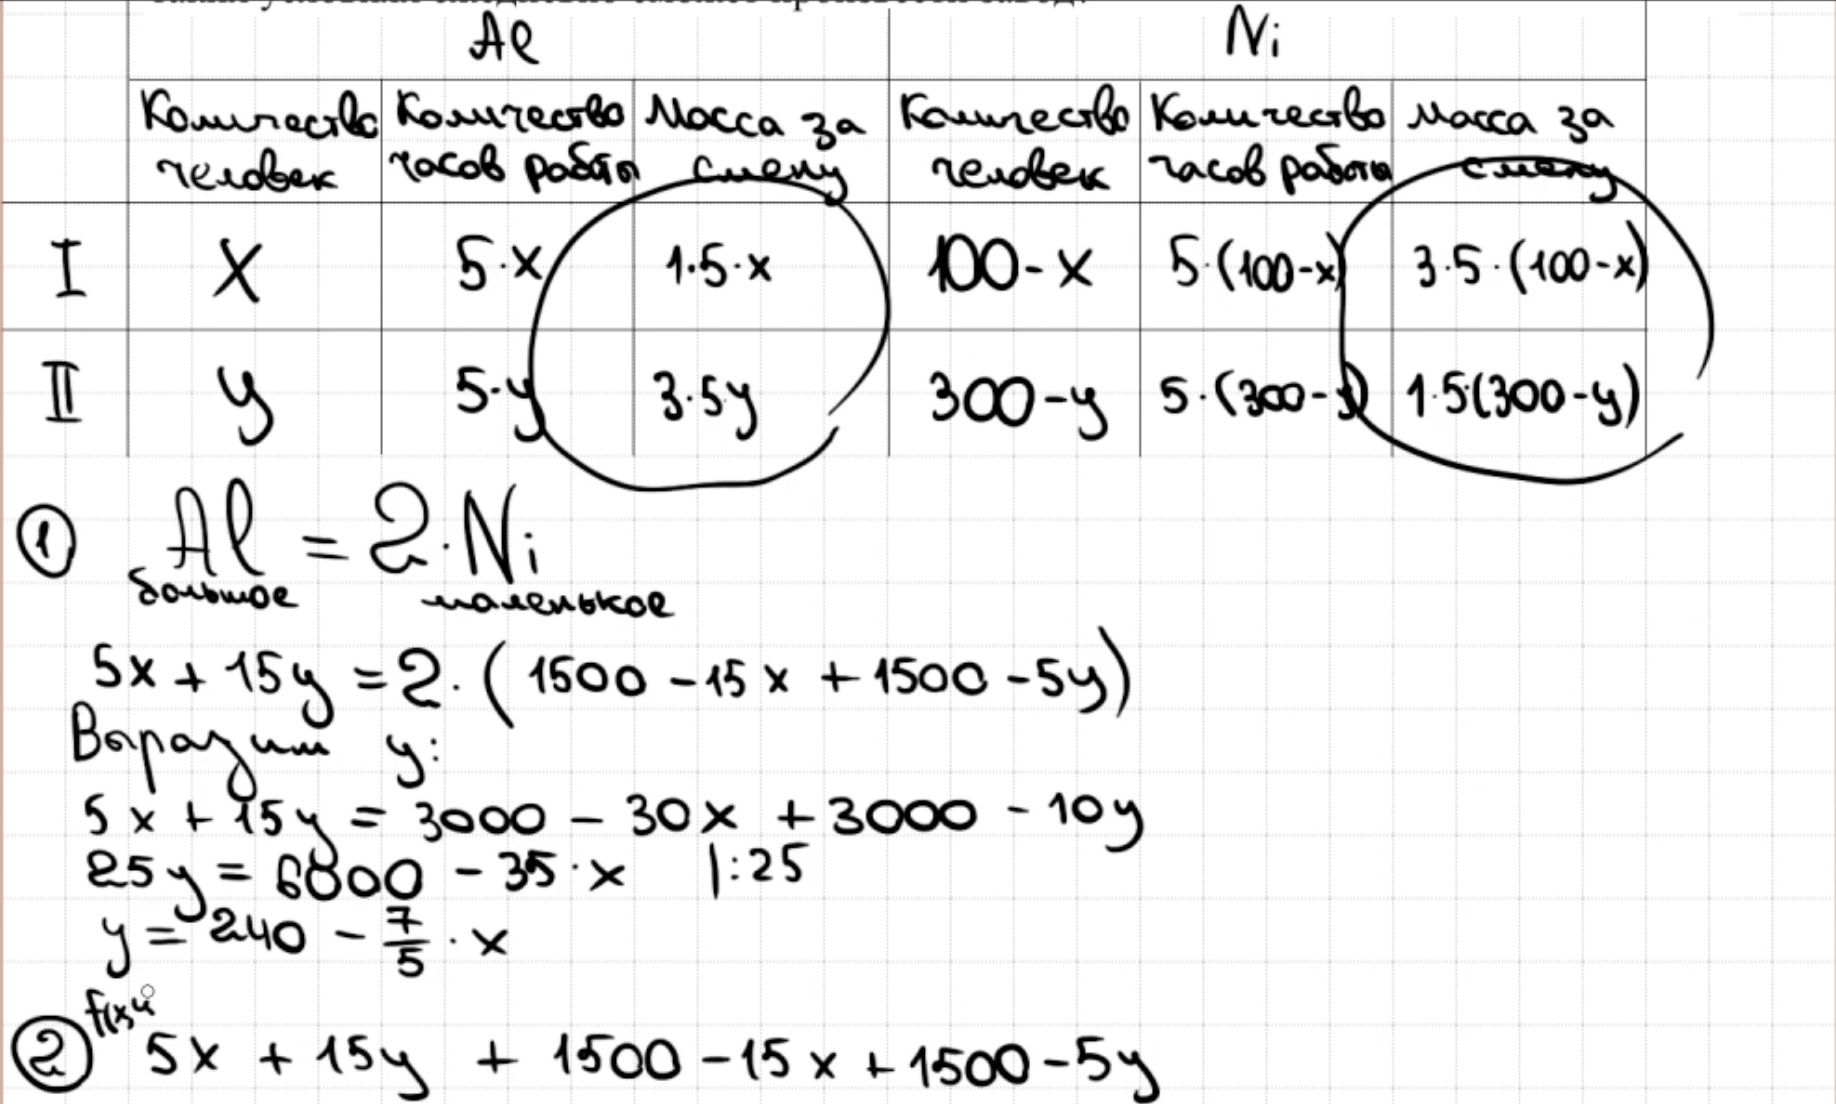 Al Ni
Количество человек Количество часов работы Масса за смену Количество человек Количество часов работы Масса за смену
I x 5·x 1·5·x 100-x 5·(100-x) 3·5·(100-x)
II y 5·y 3·5y 300-y 5·(300-y) 1·5(300-y)
① Al = 2·Ni
большое маленькое
5x + 15y = 2·(1500 - 15x + 1500 - 5y)
Выразим y:
5x + 15y = 3000 - 30x + 3000 - 10y
25y = 6000 - 35·x |:25
y = 240 - 7/5 · x
② 5x + 15y + 1500 - 15x + 1500 - 5y